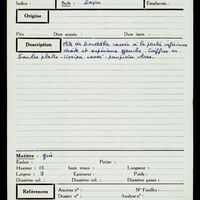 Index : Style : Bayon Emplacem. :
Origine
Prix Date acquis. Date inscript.
Description Tête de Bouddha cassée à la partie inférieure
droite et supérieure gauche. Coiffure en
boucles plates. closes.
Matière : grès
Embas : Patine :
Hauteur : 15 haut. tenon : Longueur :
Largeur : 9 Epaisseur : Poids :
Diamètre col. : Diamètre cul. : Diamètre panse :
Références Anciens n° : N° Fouilles :
Dossier n° : Analyse n° :